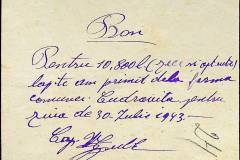 Bon
Pentru 10,800 l (zeci si optsute)
lapte am primit dela ferma
comunei Cudrenita pentru
ziua de 30 Iulie 1943.-
Cap.